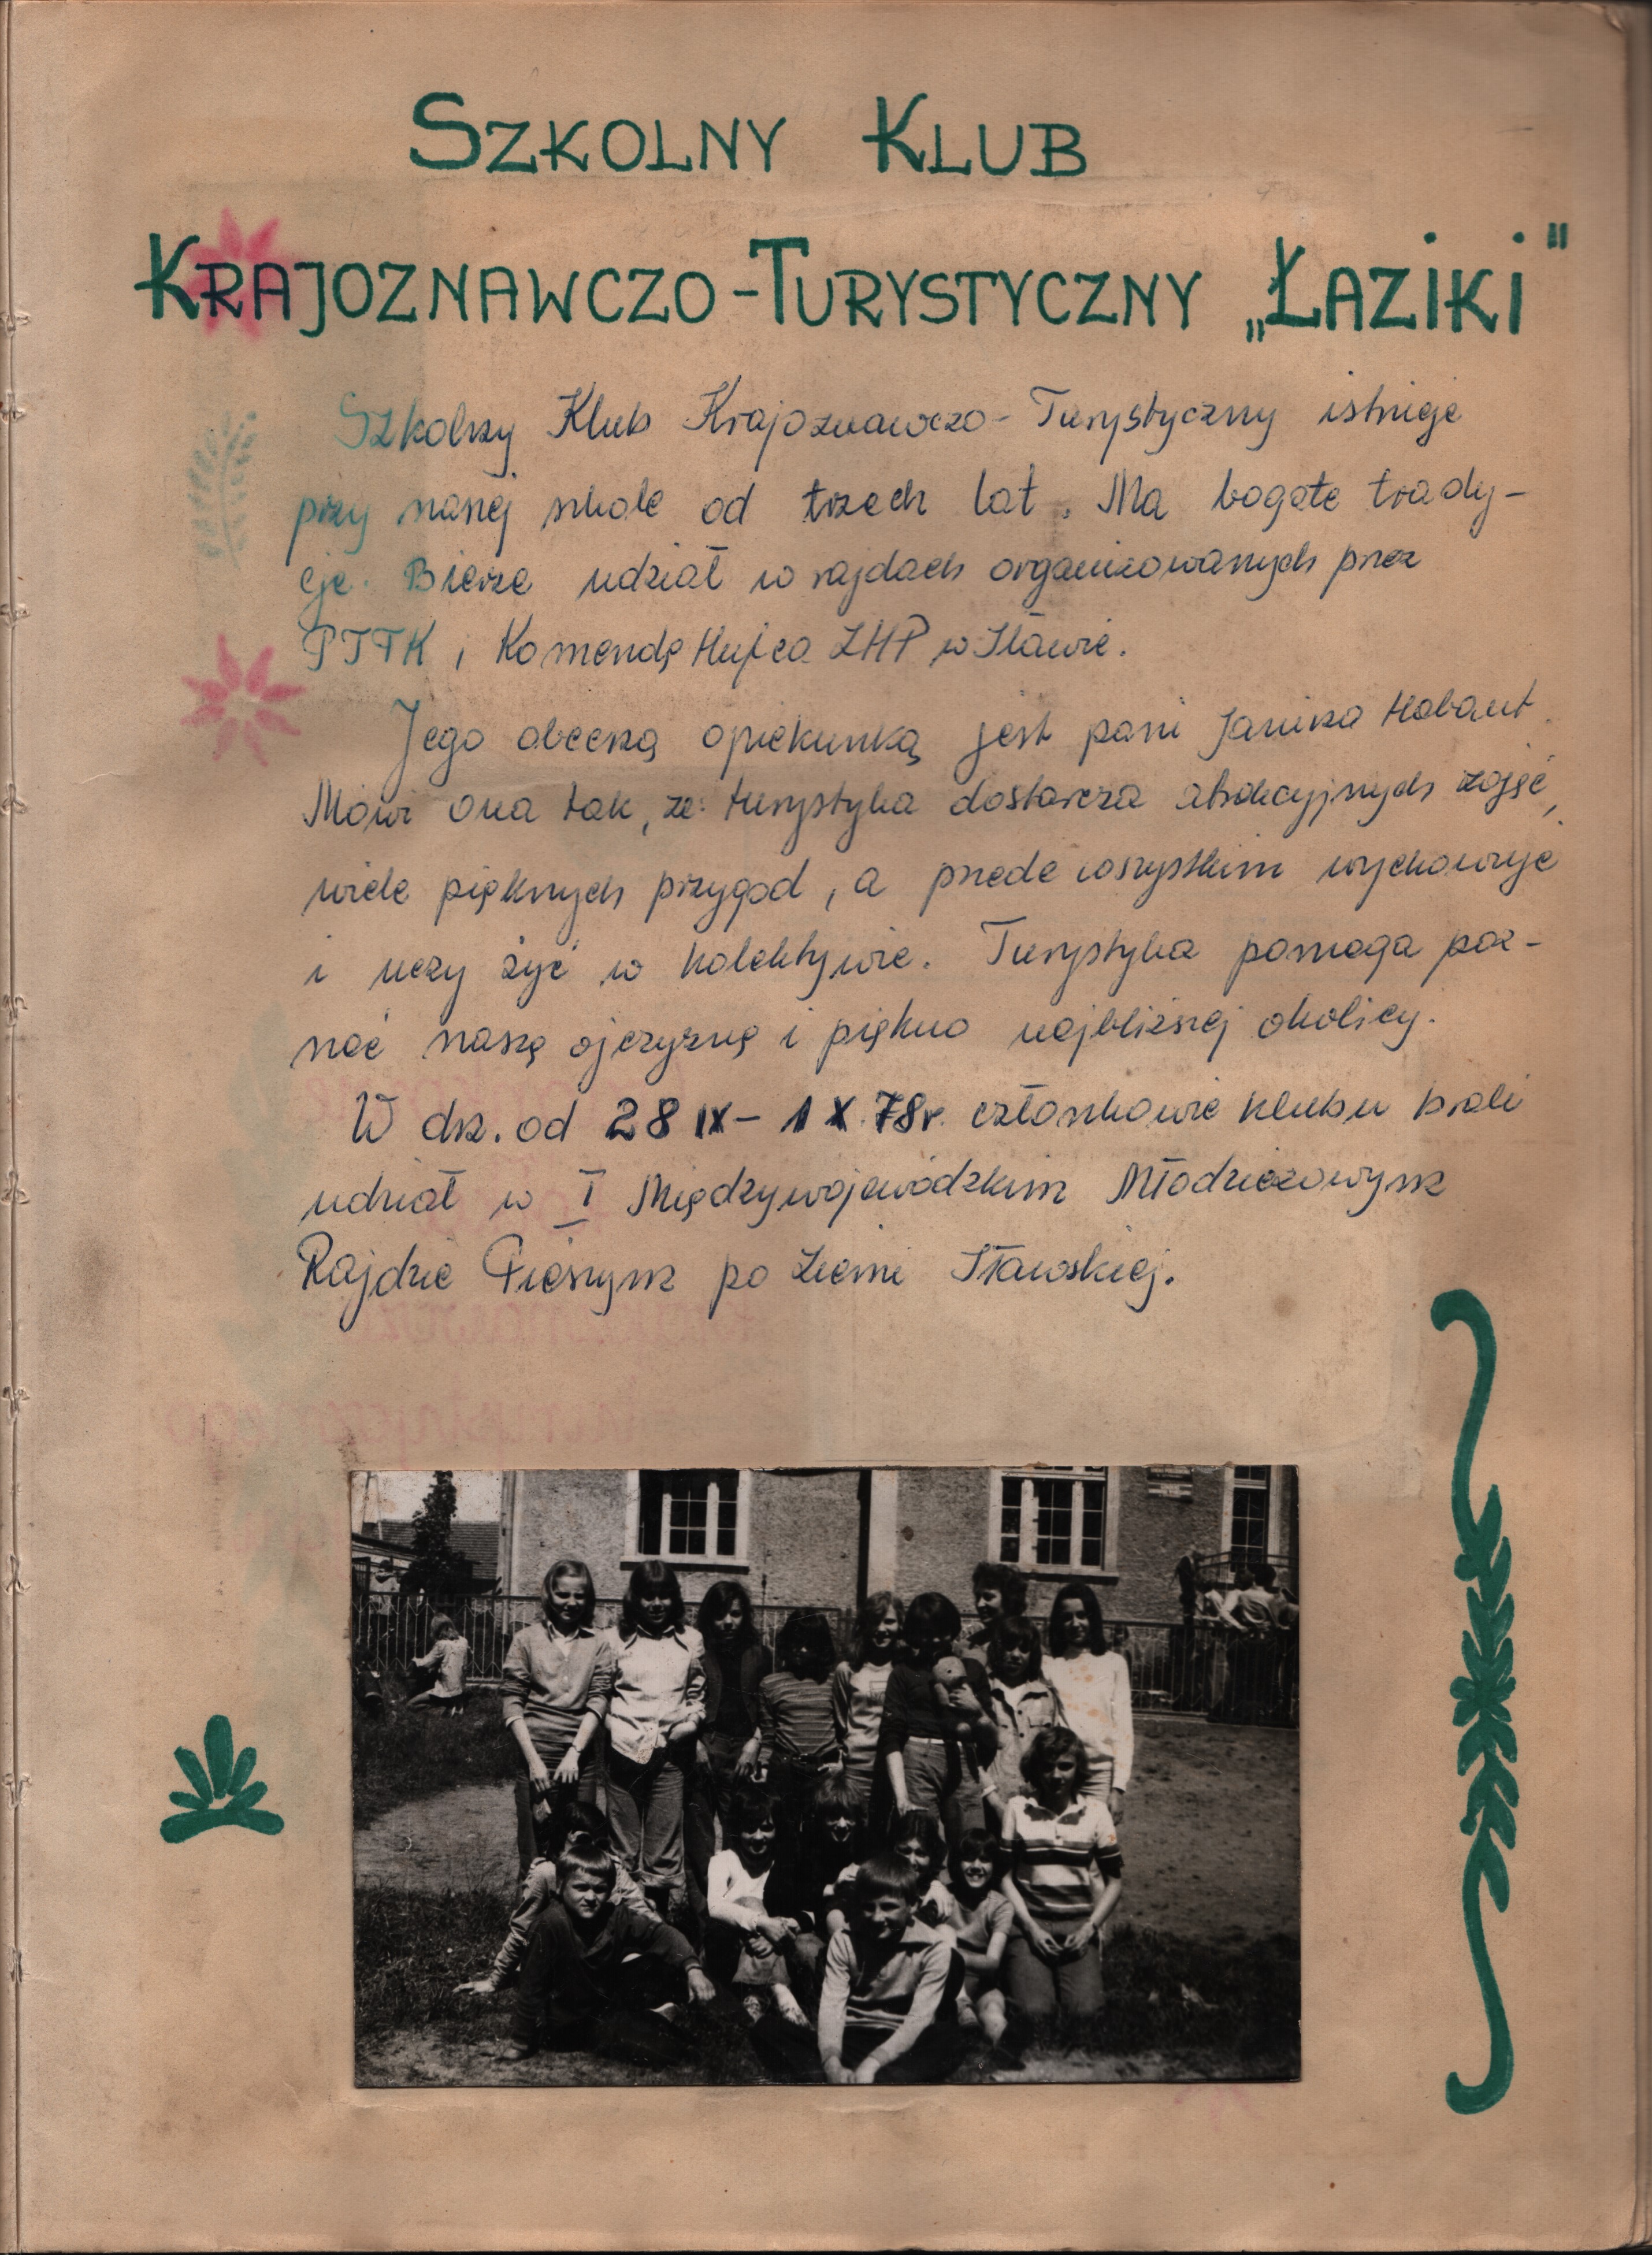 SZKOLNY KLUB
KRAJOZNAWCZO-TURYSTYCZNY „ŁAZIKI"
Szkolny Klub Krajoznawczo-Turystyczny istnieje
przy naszej szkole od trzech lat. Ma bogate trady-
cje. Bierze udział w rajdach organizowanych przez
PTTK i Komendę Hufca ZHP w Iławie.
Jego obecną opiekunką jest pani Janina Habant.
Mówi ona tak, że: turystyka dostarcza atrakcyjnych zajęć,
wiele pięknych przygód, a przede wszystkim wychowuje
i uczy żyć w kolektywie. Turystyka pomaga poz-
nać naszą ojczyznę i piękno najbliższej okolicy.
W dn. od 28 IX - 1 X 78r. członkowie klubu brali
udział w I Międzywojewódzkim Młodzieżowym
Rajdzie Pieszym po Ziemi Iławskiej.